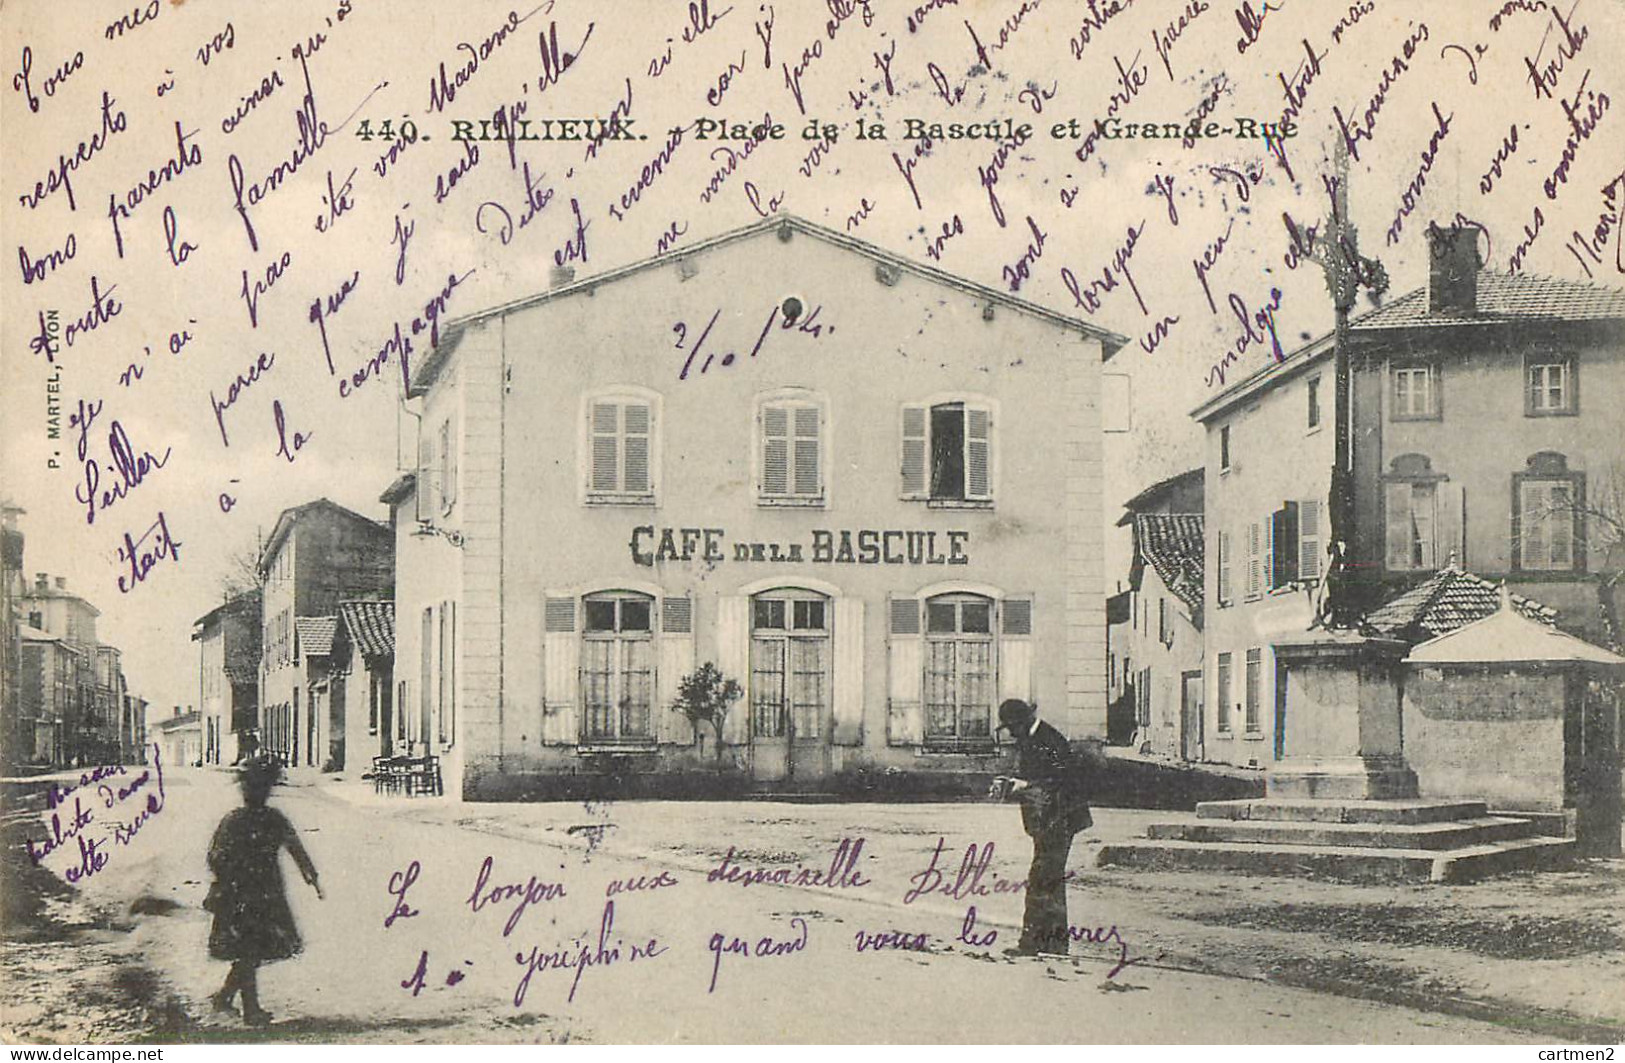 440. RILLIEUX. - Place de la Bascule et Grande-Rue
P. MARTEL, LYON
CAFE DE LA BASCULE
Tous mes
respects à vos
bons parents ainsi qu'à
toute la famille
Je n'ai pas été voir Madame
parce que je sais qu'elle
était à la campagne
Dites-moi si elle
est revenue car je
ne voudrais pas allez
la voir si je
ne pas la
mes jours de sortie
sont si courte
lorsque je vais aller
un peu de partout mais
malgré cela je
le moment de
chez vous. fortes
mes amitiés
Maria
2/10 /04.
Ma sœur
habite dans
cette rue
Le bonjoir aux demoizelle
à joséphine quand vous les verrez
cartmen2